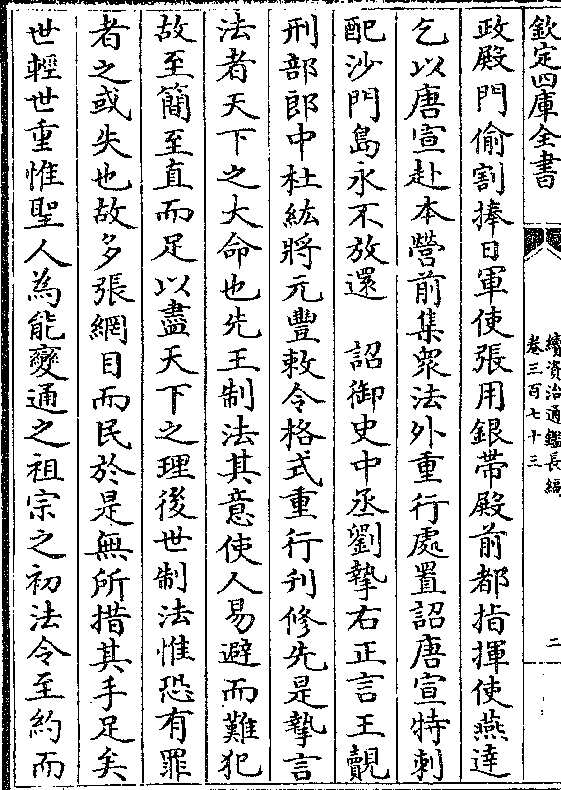 欽定四庫全書
續資治通鑑長編
卷三百七十三
二
政殿門偷割捧日軍使張用銀帶殿前都指揮使燕達
乞以唐宣赴本營前集衆法外重行處置詔唐宣特刺
配沙門島永不放還　詔御史中丞劉摯右正言王覿
刑部郎中杜紘將元豐敕令格式重行刊修先是摯言
法者天下之大命也先王制法其意使人易避而難犯
故至簡至直而足以盡天下之理後世制法惟恐有罪
者之或失也故多張綱目而民於是無所措其手足矣
世輕世重惟聖人為能變通之祖宗之初法令至約而